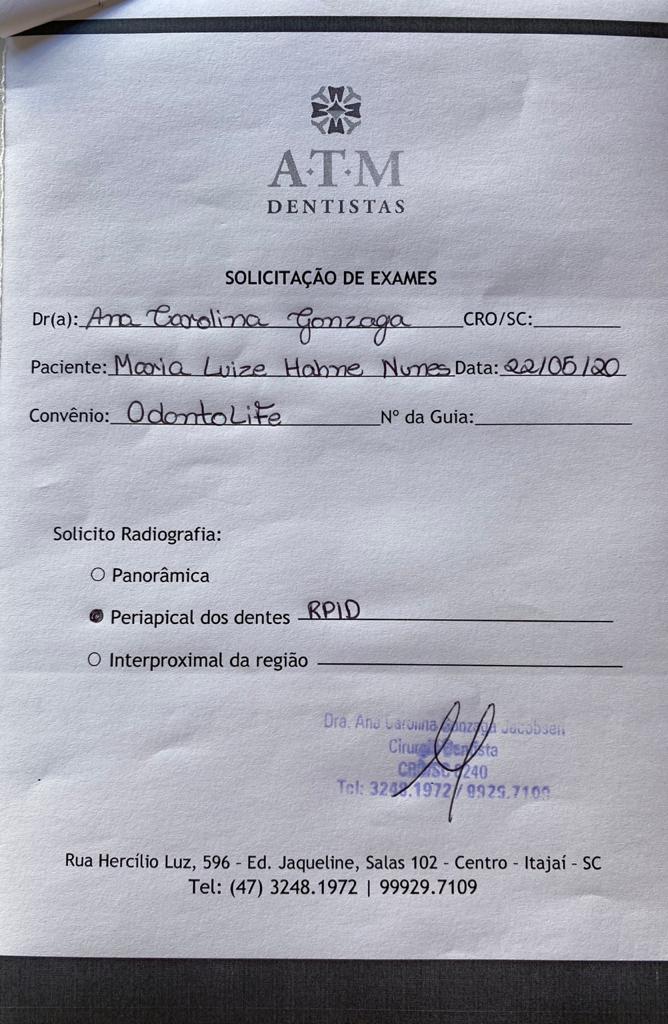 A·T·M
DENTISTAS
SOLICITAÇÃO DE EXAMES
Dr(a): Ana Carolina Gonzaga CRO/SC:
Paciente: Maria Luize Hahne Nunes Data: 22/05/20
Convênio: OdontoLife Nº da Guia:
Solicito Radiografia:
Panorâmica
Periapical dos dentes RPID
Interproximal da região
Dra. Ana Carolina Gonzaga Jacobsen
Cirurgiã Dentista
CRO/SC
Tel: 3248.1972 / 9929.7109
Rua Hercílio Luz, 596 - Ed. Jaqueline, Salas 102 - Centro - Itajaí - SC
Tel: (47) 3248.1972 | 99929.7109